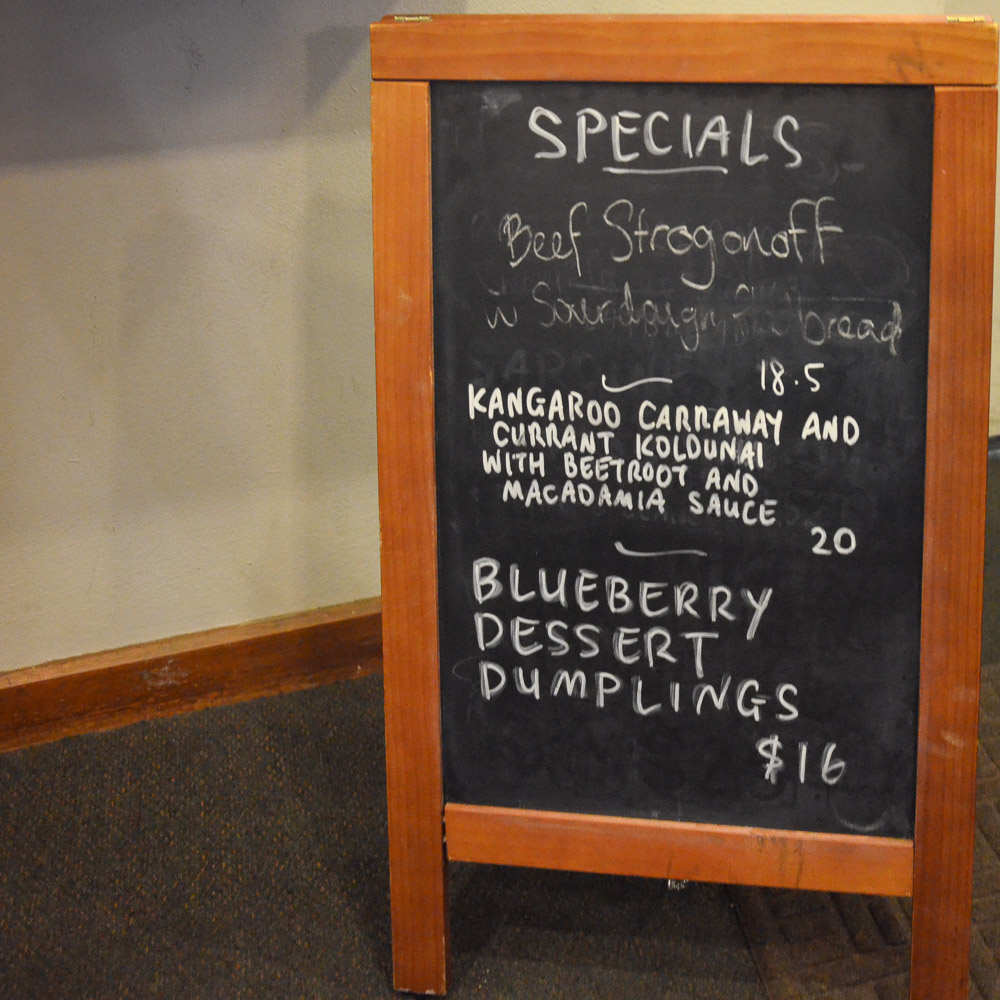 SPECIALS
Beef Strogonoff
w Sourdough bread
18.5
KANGAROO CARRAWAY AND
CURRANT KOLDUNAI
WITH BEETROOT AND
MACADAMIA SAUCE
20
BLUEBERRY
DESSERT
DUMPLINGS
$16